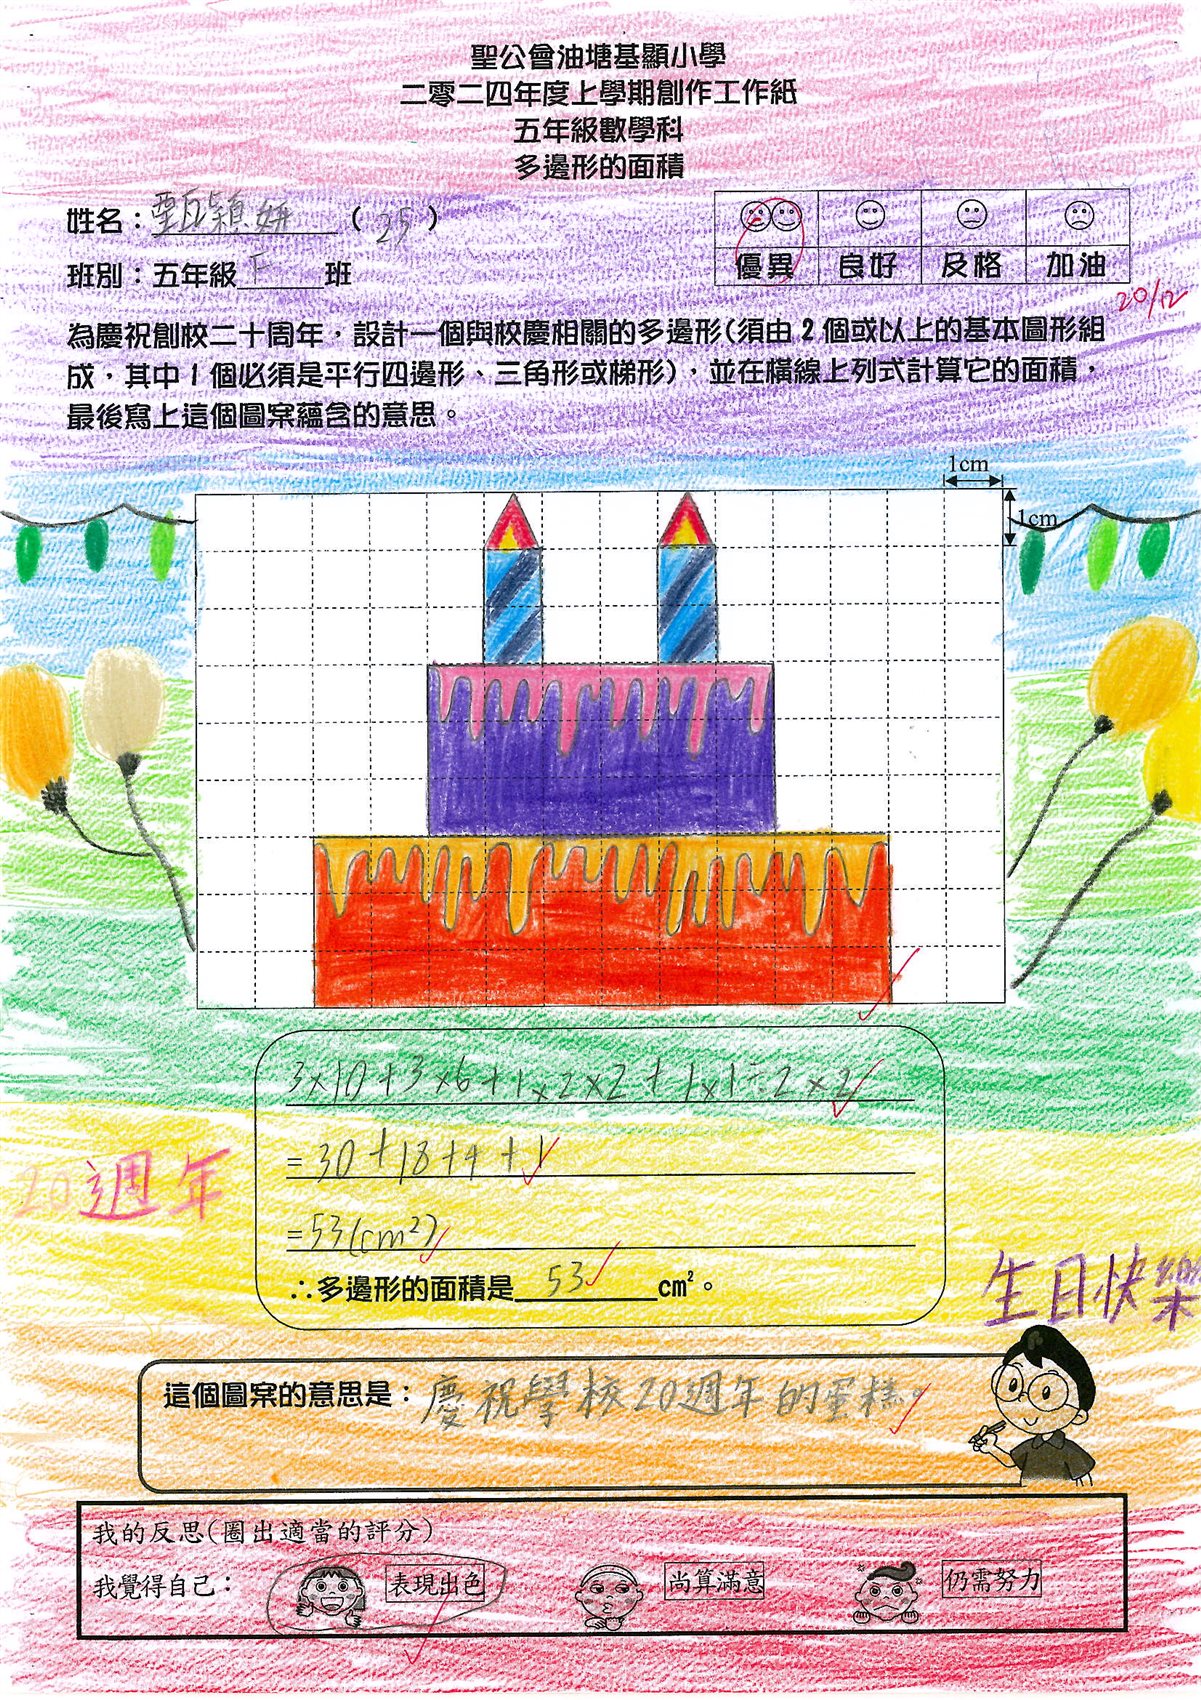 聖公會油塘基顯小學
二零二四年度上學期創作工作紙
五年級數學科
多邊形的面積
姓名：甄穎妍（25）
班別：五年級F班
優異 良好 及格 加油
20/12
為慶祝創校二十周年，設計一個與校慶相關的多邊形(須由2個或以上的基本圖形組
成，其中1個必須是平行四邊形、三角形或梯形)，並在橫線上列式計算它的面積，
最後寫上這個圖案蘊含的意思。
1cm
1cm
3×10+3×6+1×2×2+1×1÷2×2
=30+18+4+1
20週年
=53(cm²)
∴多邊形的面積是53cm²。
生日快樂
這個圖案的意思是：慶祝學校20週年的蛋糕。
我的反思(圈出適當的評分)
我覺得自己： 表現出色 尚算滿意 仍需努力